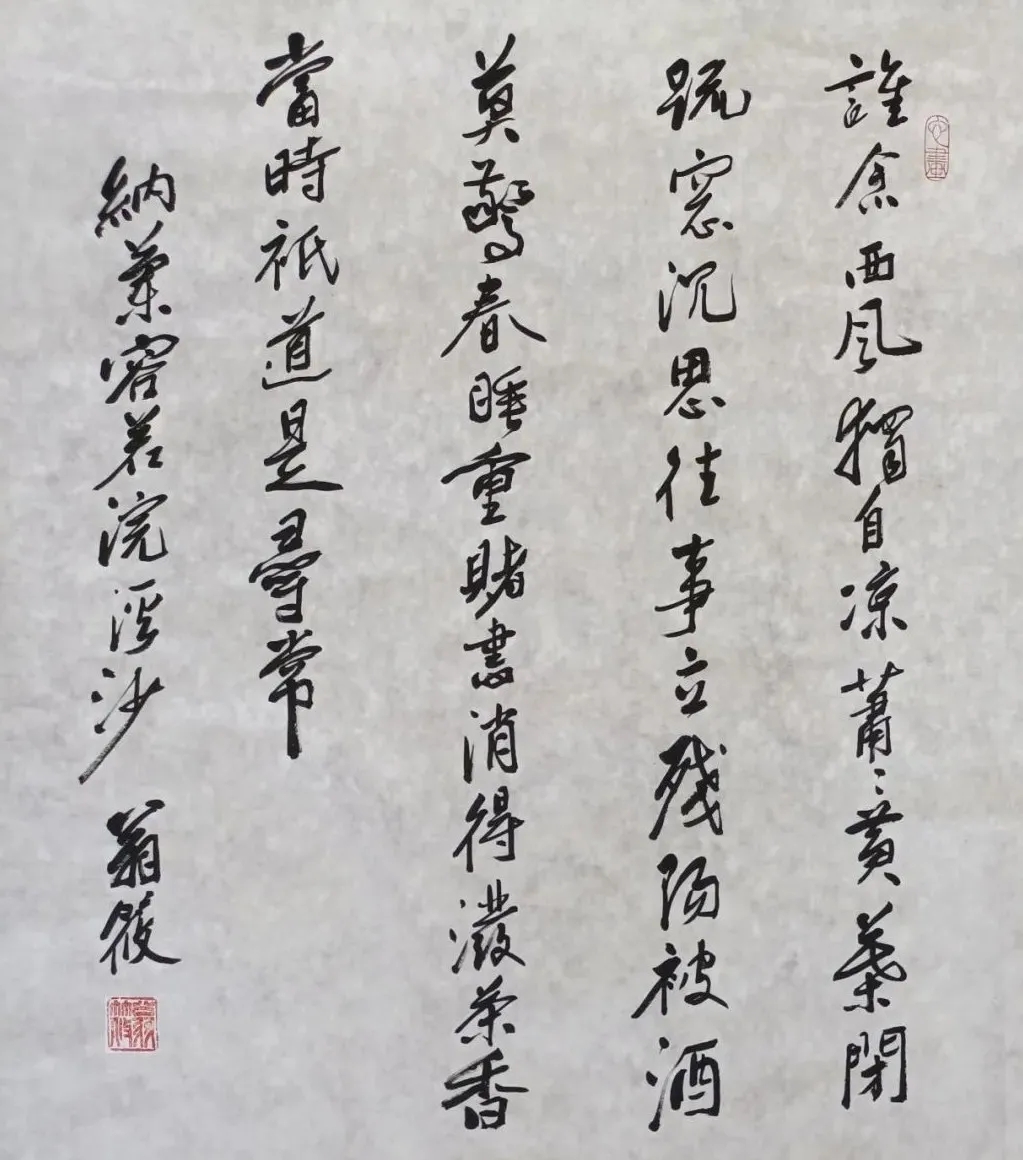 誰念西風獨自凉蕭〻黄葉閉
疏窓沉思往事立殘陽被酒
莫驚春睡重賭書消得潑茶香
當時衹道是尋常
納蘭容若浣溪沙 翁